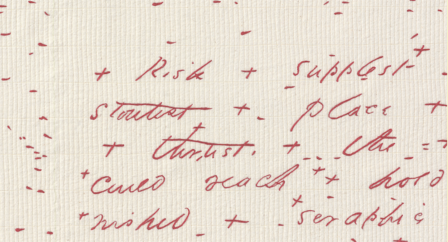 + Risk + supplest +
stoutest + - place +
+ thrust. + - - the - +
+ Could reach + + hold
+ wished - + - + seraphic